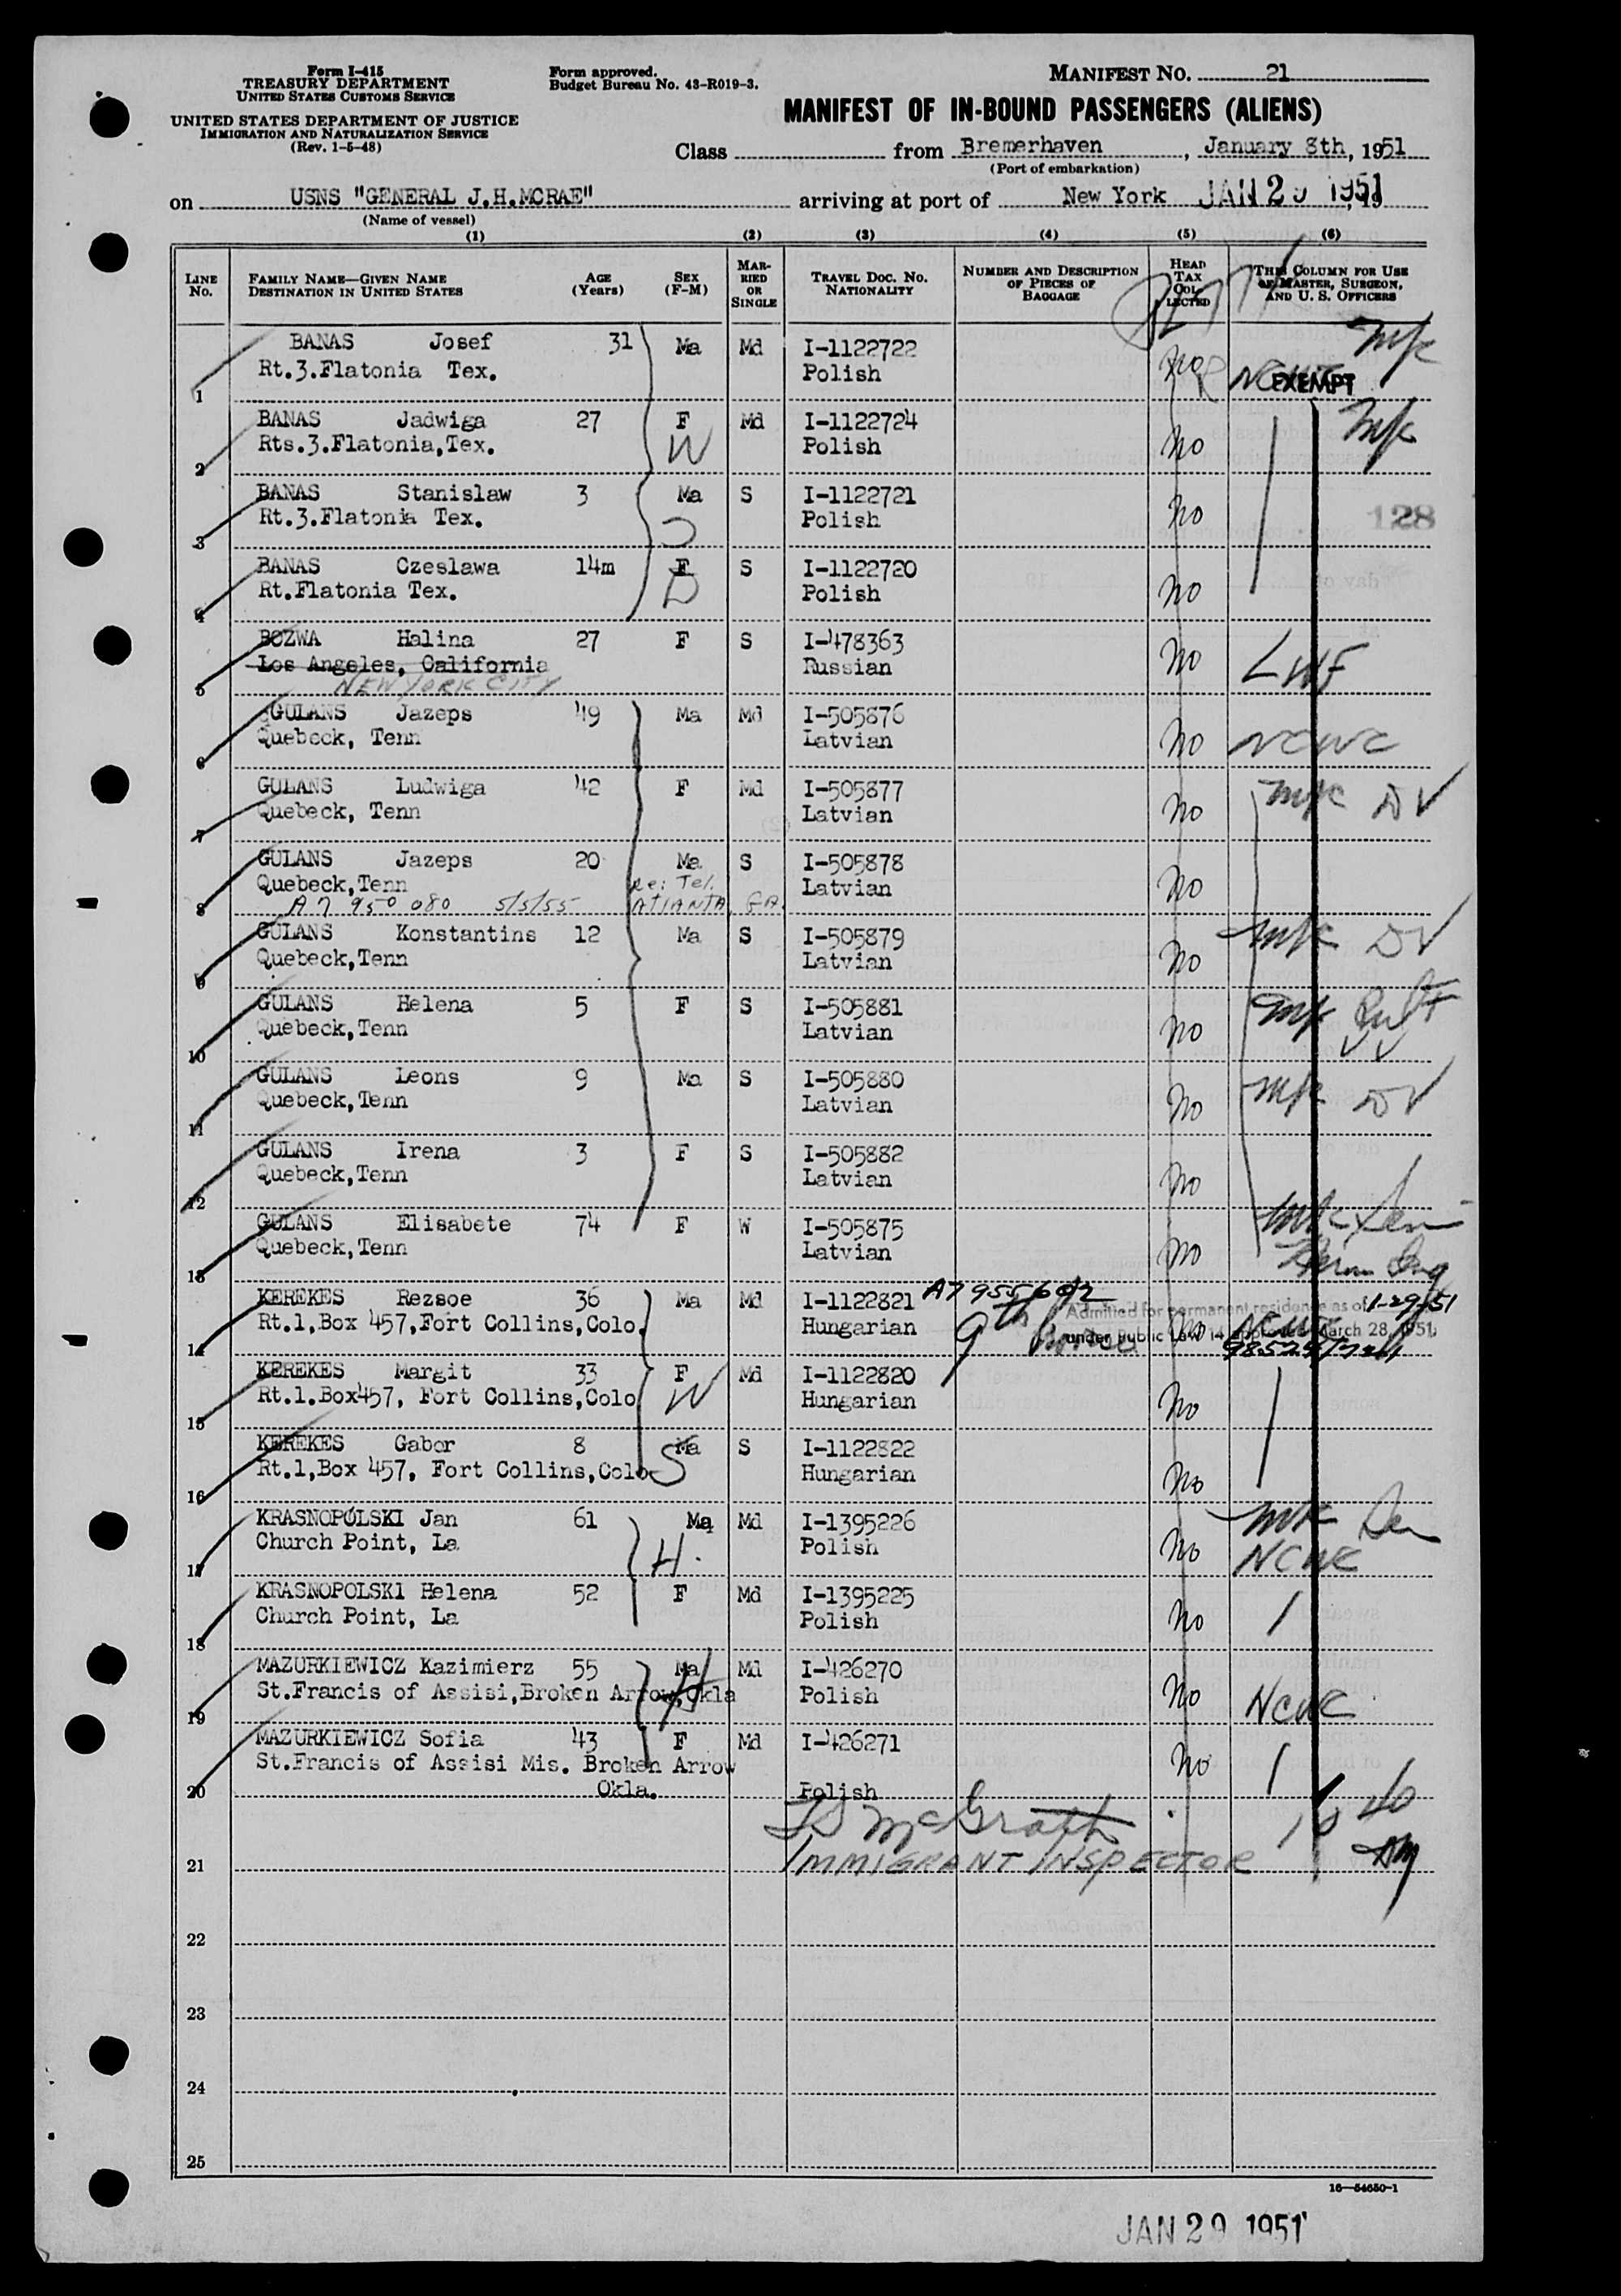 Form I-415
TREASURY DEPARTMENT
UNITED STATES CUSTOMS SERVICE
UNITED STATES DEPARTMENT OF JUSTICE
IMMIGRATION AND NATURALIZATION SERVICE
(Rev. 1-5-48)
Form approved.
Budget Bureau No. 43-R019-3.
MANIFEST NO. 21
MANIFEST OF IN-BOUND PASSENGERS (ALIENS)
Class from Bremerhaven, January 8th, 1951
(Port of embarkation)
on USNS "GENERAL J.H.MCRAE" arriving at port of New York JAN 29 1951, 19
(Name of vessel)
(1) (2) (3) (4) (5) (6)
LINE No. FAMILY NAME—GIVEN NAME DESTINATION IN UNITED STATES AGE (Years) SEX (F-M) MARRIED OR SINGLE TRAVEL DOC. NO. NATIONALITY NUMBER AND DESCRIPTION OF PIECES OF BAGGAGE HEAD TAX COLLECTED THIS COLUMN FOR USE OF MASTER, SURGEON, AND U. S. OFFICERS
BANAS Josef 31 Ma Md I-1122722
1 Rt.3.Flatonia Tex. Polish no EXEMPT
BANAS Jadwiga 27 F Md I-1122724
2 Rts.3.Flatonia,Tex. W Polish no
BANAS Stanislaw 3 Ma S I-1122721
3 Rt.3.Flatonia Tex. Polish no 128
BANAS Czeslawa 14m F S I-1122720
4 Rt.Flatonia Tex. D Polish no
BOZWA Halina 27 F S I-478363
5 Los Angeles, California Russian no LWF
NEW YORK CITY
GULANS Jazeps 49 Ma Md I-505876
6 Quebeck, Tenn Latvian no NCWC
GULANS Ludwiga 42 F Md I-505877
7 Quebeck, Tenn Latvian no DV
GULANS Jazeps 20 Ma S I-505878
8 Quebeck,Tenn Re: Tel. Latvian no
A7 950 080 5/5/55 ATLANTA, GA.
GULANS Konstantins 12 Ma S I-505879
9 Quebeck,Tenn Latvian no DV
GULANS Helena 5 F S I-505881
10 Quebeck,Tenn Latvian no
GULANS Leons 9 Ma S I-505880
11 Quebeck,Tenn Latvian no DV
GULANS Irena 3 F S I-505882
12 Quebeck,Tenn Latvian no
GULANS Elisabete 74 F W I-505875
13 Quebeck,Tenn Latvian no
KEREKES Rezsoe 36 Ma Md I-1122821 Admitted for permanent residence as of 1-29-51
14 Rt.1,Box 457,Fort Collins,Colo. Hungarian under Public Law 14 approved March 28, 1951
KEREKES Margit 33 F Md I-1122820
15 Rt.1.Box457, Fort Collins,Colo W Hungarian no
KEREKES Gabor 8 Ma S I-1122822
16 Rt.1,Box 457, Fort Collins,Colo S Hungarian no
KRASNOPOLSKI Jan 61 Ma Md I-1395226
17 Church Point, La H. Polish no NCWC
KRASNOPOLSKI Helena 52 F Md I-1395225
18 Church Point, La Polish no
MAZURKIEWICZ Kazimierz 55 Ma Md I-426270
19 St.Francis of Assisi,Broken Arrow,Okla H Polish no NCWC
MAZURKIEWICZ Sofia 43 F Md I-426271
St.Francis of Assisi Mis. Broken Arrow no
20 Okla. Polish
McGrath
21 IMMIGRANT INSPECTOR
22
23
24
25
16—54650-1
JAN 29 1951